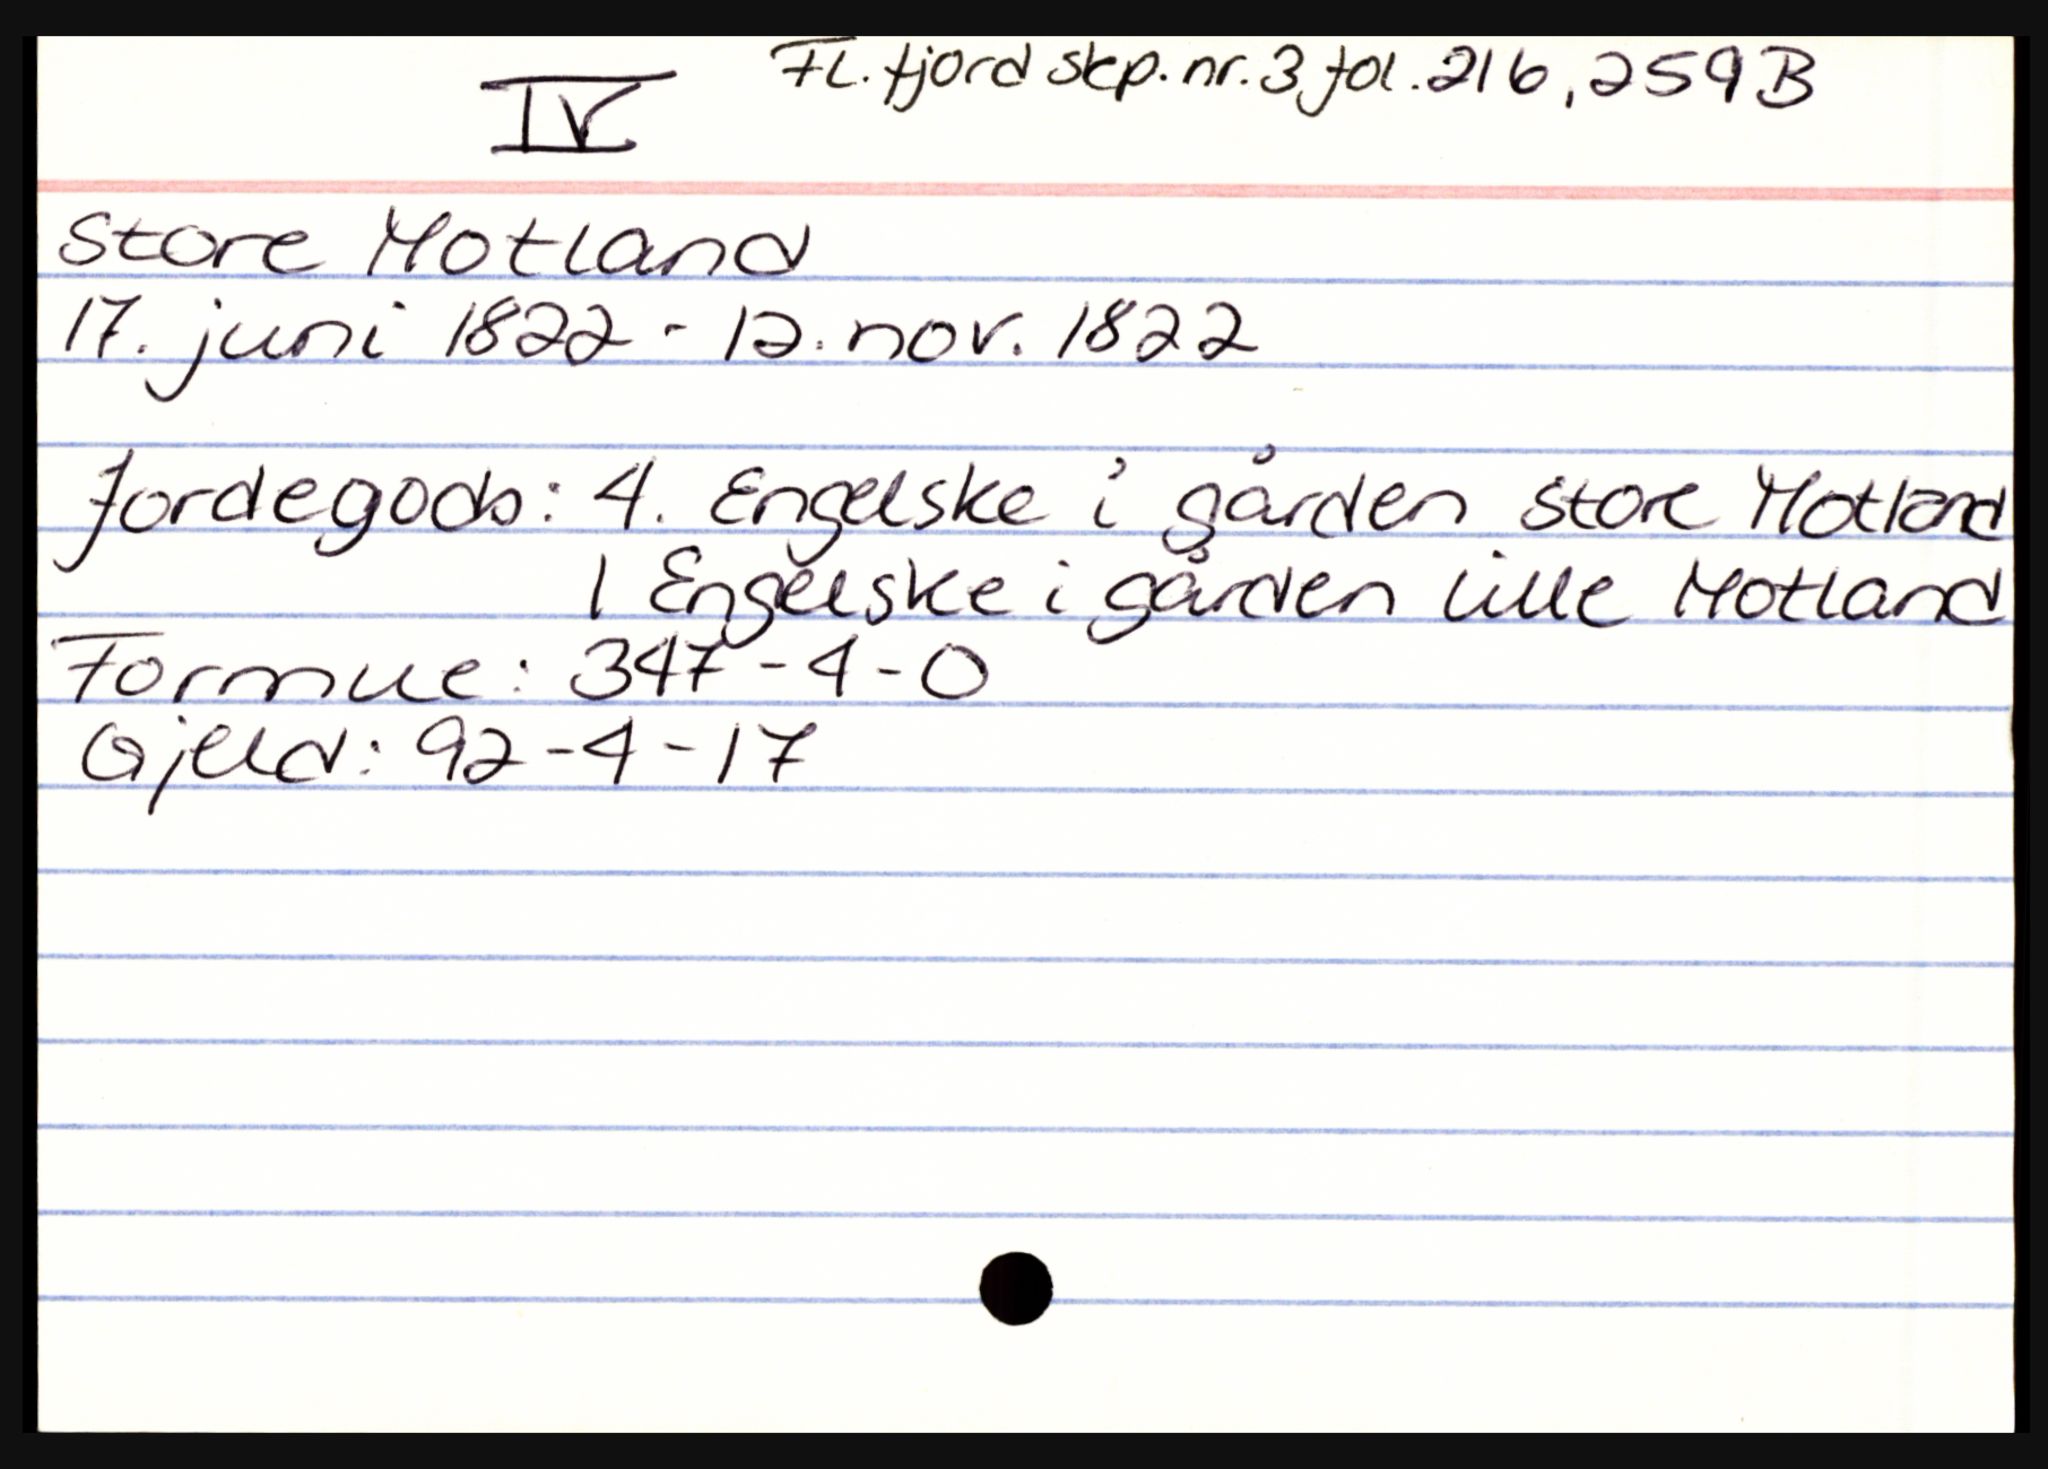 IV Fl. fjord skp. nr. 3 fol. 216, 259B
Store Motland
17. juni 1822 - 12. nov. 1822
Jordegods: 4. Engelske i gården Store Motland
1 Engelske i gården Lille Motland
Formue: 347-4-0
Gjeld: 92-4-17